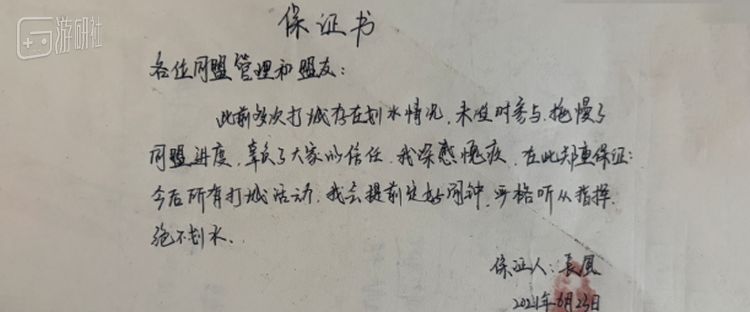 游研社
保证书
各位同盟管理和盟友:
此前多次打城存在划水情况,未及时参与,拖慢了
同盟进度,辜负了大家的信任,我深感愧疚,在此郑重保证:
今后所有打城活动,我会提前定好闹钟,严格听从指挥,
绝不划水。
保证人:長風
2021年6月23日